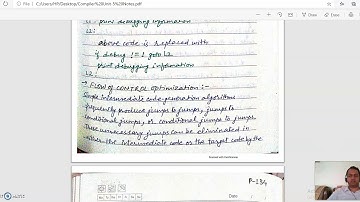 File | C:/Users/HP/Desktop/Compiler%20Unit%205%20Notes.pdf
print debugging information
L2:
above code is replaced with
if debug != 1 goto L2
print debugging information
L2:
→ FLOW OF CONTROL OPTIMIZATION :-
Simple intermediate code generation algorithms
frequently produce jumps to jumps, jumps to
conditional jumps, or conditional jumps to jumps.
These unnecessary jumps can be eliminated in
either the intermediate code or the target code by the
Scanned with CamScanner
P-134
Date